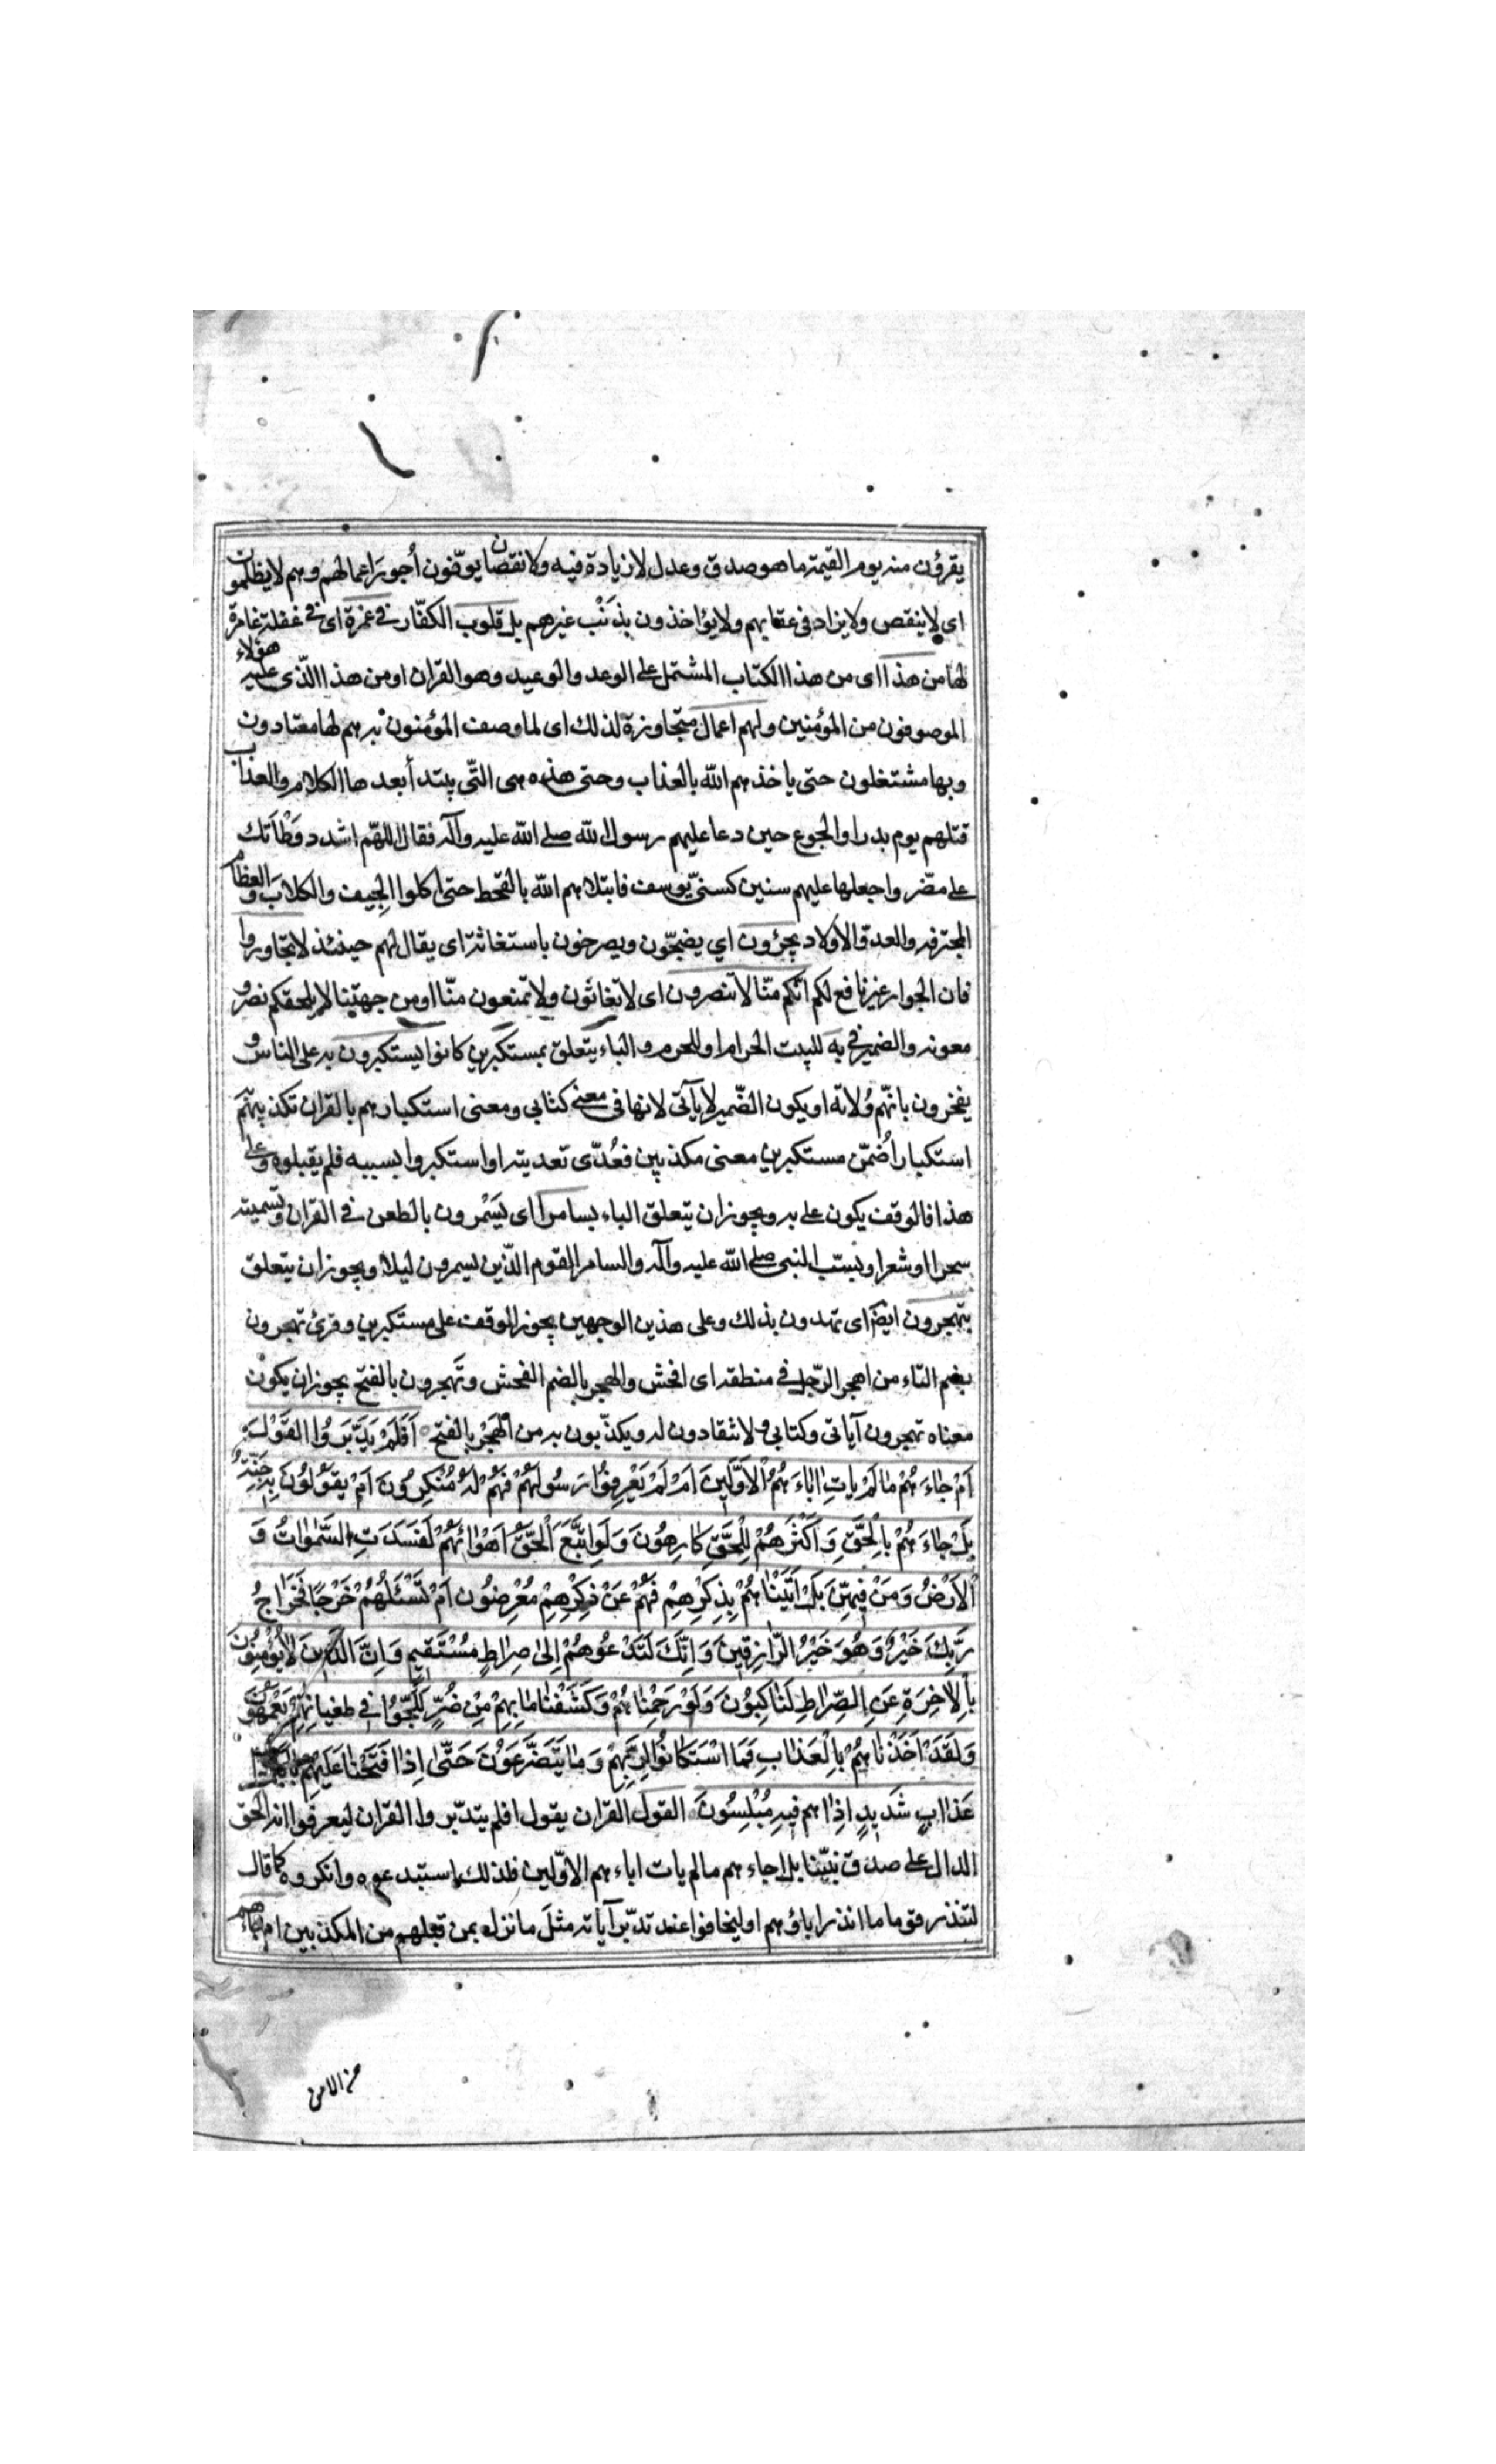 يقرؤن منه يوم القيمة ما هو صدق وعدل لا زيادة فيه ولا نقصان يوفّون أجور اعمالهم وهم لا يظلمون
اى لا ينقص ولا يزاد فى عقابهم ولا يؤاخذون بذنب غيرهم بل قلوب الكفّار فى غمرة اى فى غفلة غامرة
لها من هذا اى من هذا الكتاب المشتمل على الوعد والوعيد وهو القران او من هذا الّذى عليه هؤلاء
الموصوفون من المؤمنين ولهم اعمال متجاوزة لذلك اى لما وصف المؤمنون به هم لها معتادون
وبها مشتغلون حتى ياخذهم الله بالعذاب وحتى هذه هى التّى يبتدأ بعدها الكلام والعذاب
قتلهم يوم بدر او الجوع حين دعا عليهم رسول الله صلى الله عليه وآله فقال اللهّم اشدد وَطْأَتَك
على مضّر واجعلها عليهم سنين كسنىّ يوسف فابتلاهم الله بالقحط حتى اكلوا الجِيف والكلابَ والعظام
المحترقه والعد والاولاد يجئرون اي يضجّون ويصرخون باستغاثة اى يقال لهم حينئذ لا تجاوروا
فان الجوار غير نافع لكم انّكم منّا لا تنصرون اى لا تغاثون ولا تمنعون منّا او من جهتنا لا يلحقكم نصر و
معونه والضمير فى به للبيت الحرام او للحرم والباء يتعلق بمستكبرين كانوا يستكبرون به على الناس و
يفخرون بانهّم وُلاته او يكون الضّمير لاياتى لانها فى معنى كتابي ومعنى استكبارهم بالقران تكذيبهم
استكباراً ضُمّن مستكبرين معنى مكذبين فعُدّى تعديته او استكبروا بسببه فلم يقبلوه وعلى
هذا فالوقف يكون على به ويجوز ان يتعلق الباء بسامرا اى يَسْمُرون بالطعن فى القران وتسميته
سحرا او شعرا وبسبّ النبى صلى الله عليه وآله والسامر القوم الذّين يسمرون ليلا ويجوز ان يتعلق
بتهجرون ايضاً اى تهذون بذلك وعلى هذين الوجهين يجوز الوقف على مستكبرين وقرئ تهجرون
بضم التاء من اهجر الرّجل فى منطقه اى افحش والهجر بالضم الفحش وتَهجرون بالفتح يجوز ان يكون
معناه تهجرون آياتى وكتابي ولا تنقادون له ويكذّبون به من الهَجْر بالفتح أَفَلَمْ يَدَّبَّرُوا القَوْلَ
اَمْ جٰاءَهُمْ مٰا لَمْ يَاتِ اٰبٰاءَهُمُ الْاَوَّلِينَ اَمْ لَمْ يَعْرِفُوا رَسُولَهُمْ فَهُمْ لَهُ مُنْكِرُونَ اَمْ يَقُولُونَ بِهِ جِنَّةٌ
بَلْ جٰاءَهُمْ بِالْحَقِّ وَ اَكْثَرُهُمْ لِلْحَقِّ كٰارِهُونَ وَ لَوِ اتَّبَعَ الْحَقُّ اَهْوٰائَهُمْ لَفَسَدَتِ السَّمٰوٰاتُ وَ
الْاَرْضُ وَ مَنْ فِيهِنَّ بَلْ اَتَيْنٰاهُمْ بِذِكْرِهِمْ فَهُمْ عَنْ ذِكْرِهِمْ مُعْرِضُون اَمْ تَسْئَلُهُمْ خَرْجًا فَخَرٰاجُ
رَبِّكَ خَيْرٌ وَ هُوَ خَيْرُ الرّٰازِقِينَ وَ اِنَّكَ لَتَدْعُوهُمْ اِلىٰ صِرٰاطٍ مُسْتَقِيمٍ وَ اِنَّ الَّذِينَ لاٰ يُؤْمِنُونَ
بِالْاٰخِرَةِ عَنِ الصِّرٰاطِ لَنٰاكِبُونَ وَ لَوْ رَحِمْنٰاهُمْ وَ كَشَفْنٰا مٰا بِهِمْ مِنْ ضُرٍّ لَلَجُّوا فِي طغيانِهِمْ يَعْمَهُونَ
وَ لَقَدْ اَخَذْنٰاهُمْ بِالْعَذٰابِ فَمَا اسْتَكٰانُوا لِرَبِّهِمْ وَ مٰا يَتَضَرَّعُونَ حَتّٰى اِذٰا فَتَحْنٰا عَلَيْهِمْ بٰابًا ذٰا
عَذٰابٍ شَدِيدٍ اِذٰا هم فيهِ مُبْلِسُونَ القول القران يقول افلم يتدّبروا القران ليعرفوا انه الحق
الدال على صدق نبيّنا بل اجاءهم ما لم يات اباءهم الاوّلين فلذلك استبدعوه وانكروه كما قال
لتنذر قوما ما انذر اباؤهم او ليخافوا عند تدبّر آياته مثلَ ما نزل بمن قبلهم من المكذبين ام جاءهم
من الامن